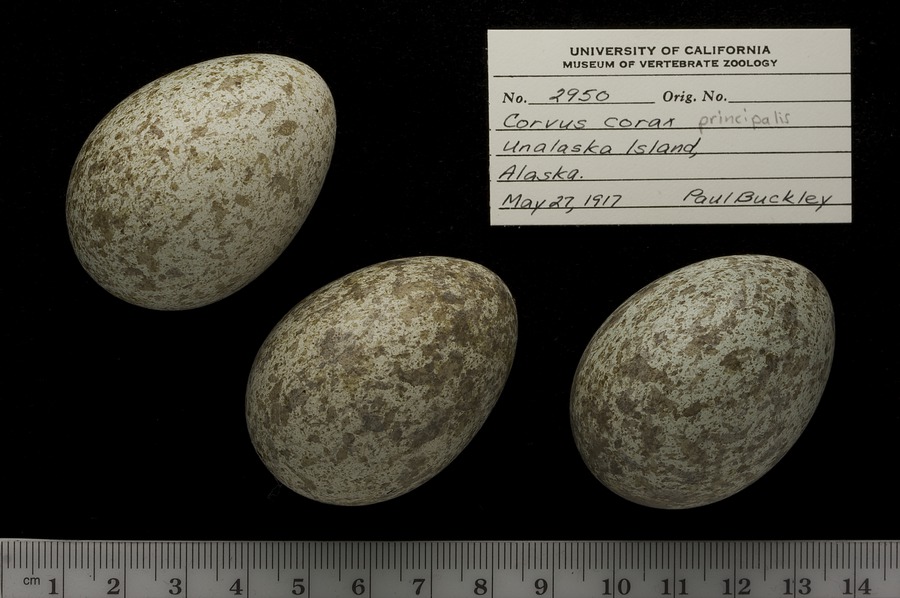 UNIVERSITY OF CALIFORNIA
MUSEUM OF VERTEBRATE ZOOLOGY
No. 2950 Orig. No.
Corvus corax principalis
Unalaska Island,
Alaska.
May 27, 1917 Paul Buckley
cm 1 2 3 4 5 6 7 8 9 10 11 12 13 14